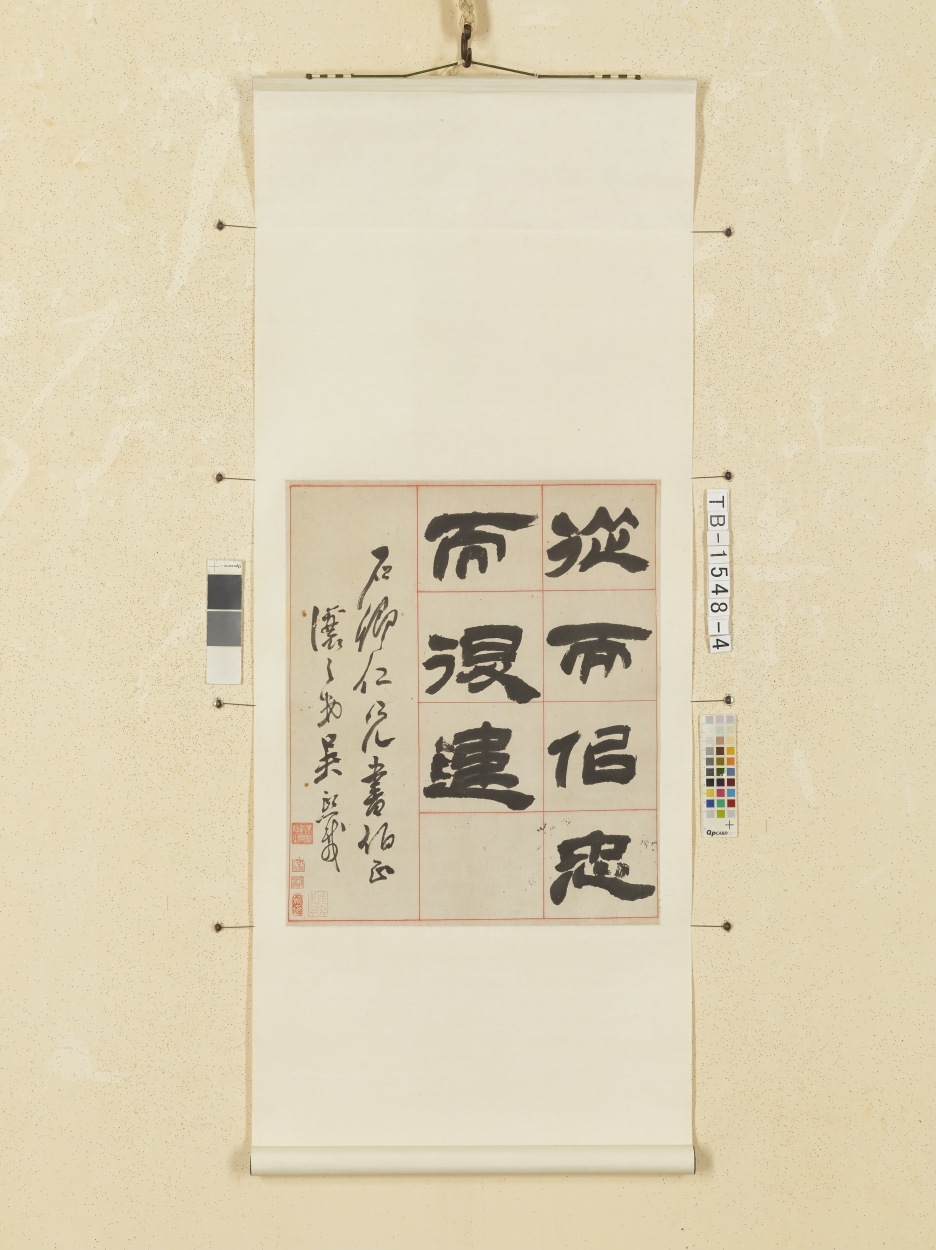 從而佀忠
而復建
石卿仁兄書伯正
讓之弟吳熙載
TB-1548-4
QPCARD